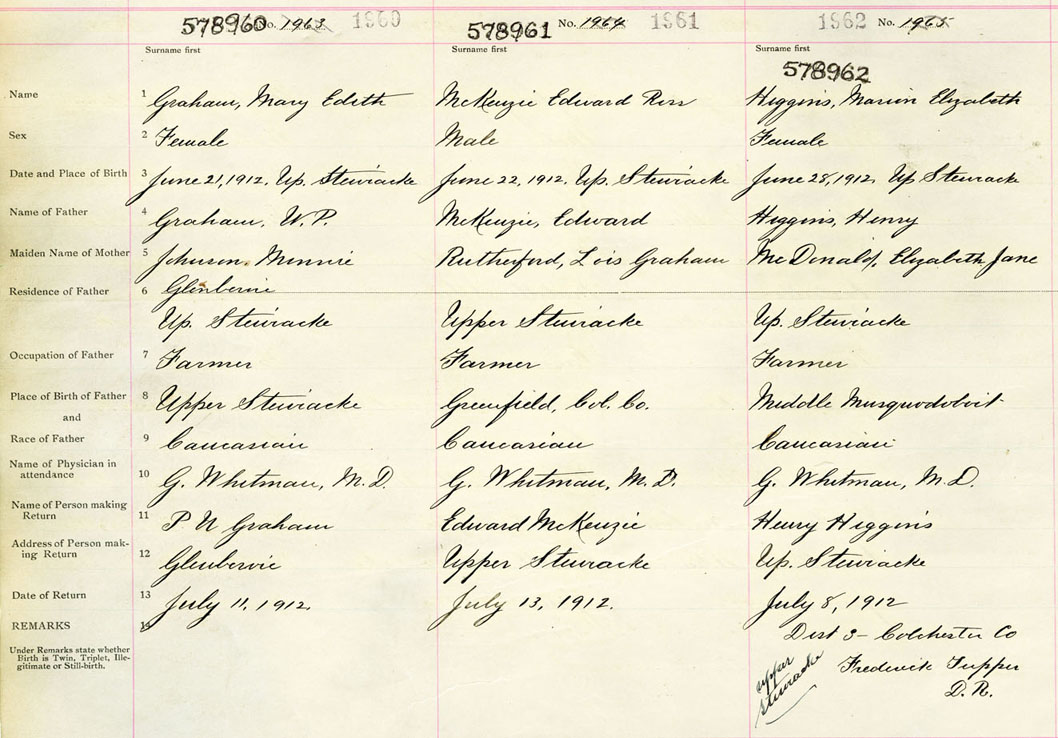 578960 No. 1963 1960 578961 No. 1964 1961 1962 No. 1965
Surname first Surname first Surname first
578962
Name 1 Graham, Mary Edith McKenzie Edward Ross Higgins, Marion Elizabeth
Sex 2 Female Male Female
Date and Place of Birth 3 June 21, 1912. Up. Stewiacke June 22, 1912. Up. Stewiacke June 28, 1912, Up Stewiacke
Name of Father 4 Graham, W. P. McKenzie, Edward Higgins, Henry
Maiden Name of Mother 5 Johnson, Minnie Rutherford, Lois Graham McDonald, Elizabeth Jane
Residence of Father 6 Glenbervie
Up. Stewiacke Upper Stewiacke Up. Stewiacke
Occupation of Father 7 Farmer Farmer Farmer
Place of Birth of Father 8 Upper Stewiacke Greenfield, Col. Co. Middle Musquodoboit
and
Race of Father 9 Caucasian Caucasian Caucasian
Name of Physician in
attendance 10 G. Whitman, M.D. G. Whitman, M.D. G. Whitman, M.D.
Name of Person making
Return 11 Graham Edward McKenzie Henry Higgins
Address of Person mak-
ing Return 12 Glenbervie Upper Stewiacke Up. Stewiacke
Date of Return 13 July 11, 1912. July 13, 1912. July 8, 1912
REMARKS 14 Dist 3 - Colchester Co
Under Remarks state whether
Birth is Twin, Triplet, Ille-
gitimate or Still-birth.
upper
Stewiacke
Frederick Tupper
D. R.